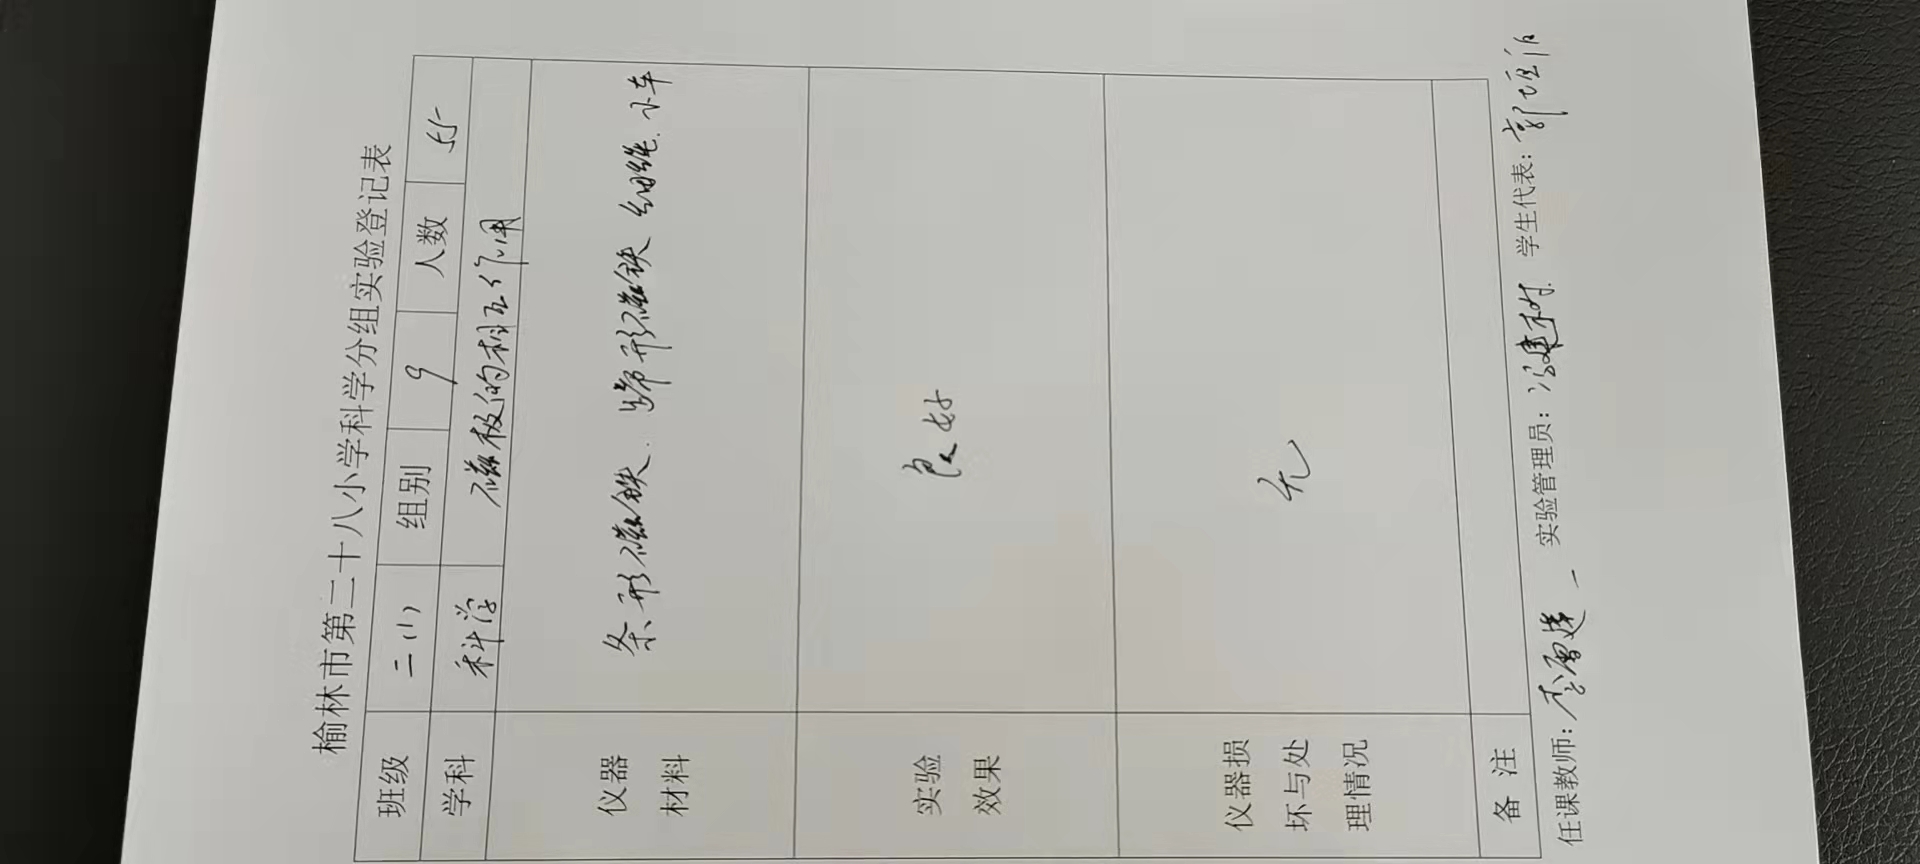 榆林市第二十八小学科学分组实验登记表
班级 二(1) 组别 9 人数 55
学科 科学 磁极的相互作用
仪器材料 条形磁铁、蹄形磁铁 细绳、小车
实验效果 良好
仪器损坏与处理情况 无
备注
任课教师: 李 实验管理员: 冯建树 学生代表: 郭